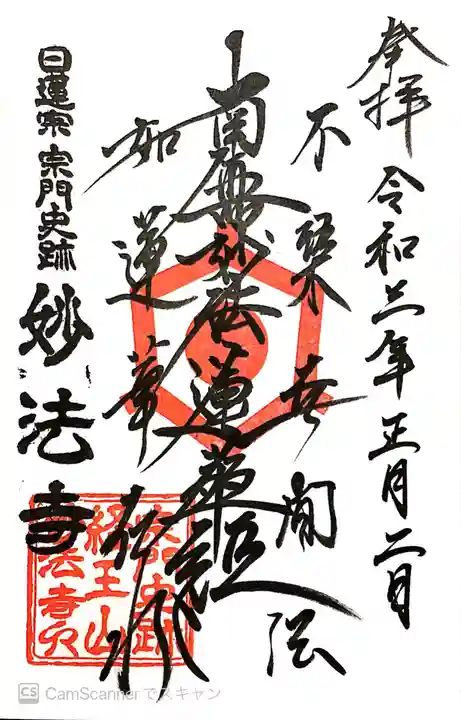 奉拝 令和三年正月二日
不染世間法
南無妙法蓮華経
如蓮華在水
日蓮宗 宗門史跡 妙法寺
宗門史跡
経王山
妙法寺
CS CamScannerでスキャン